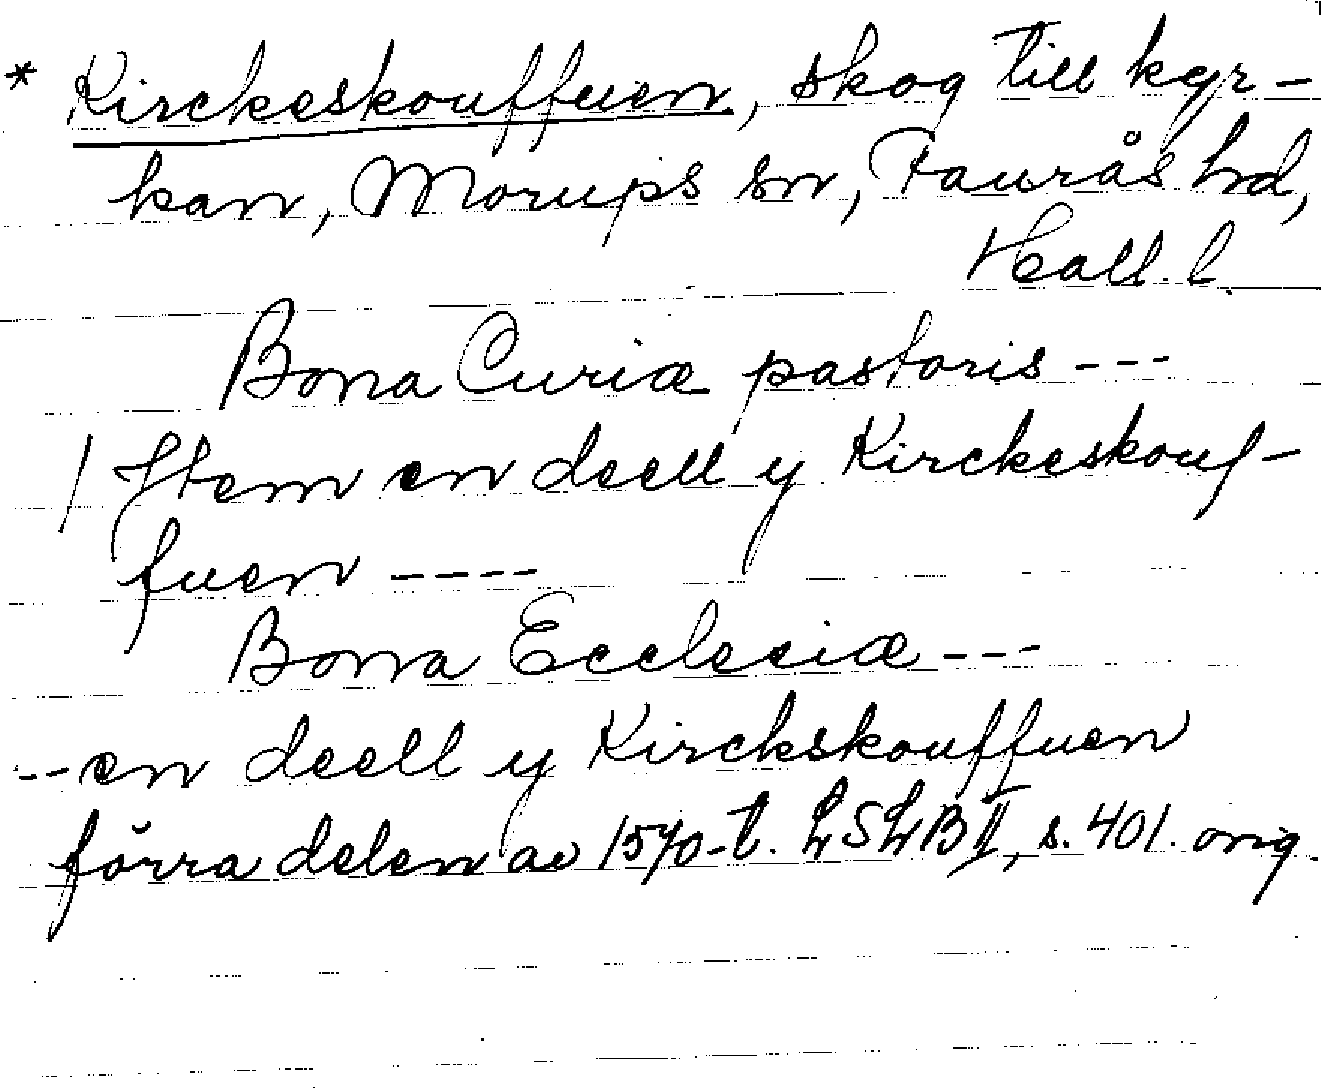 * Kirckeskouffuen, skog till kyr-
kan, Morups sn, Faurås hd,
Hall. l.
Bona Curiæ pastoris ---
/ Item en deell y Kirckeskouf-
fuen ----
Bona Ecclesiæ ---
-- en deell y Kirckskouffuen
förra delen av 1570-t. LSLB II, s. 401. orig.